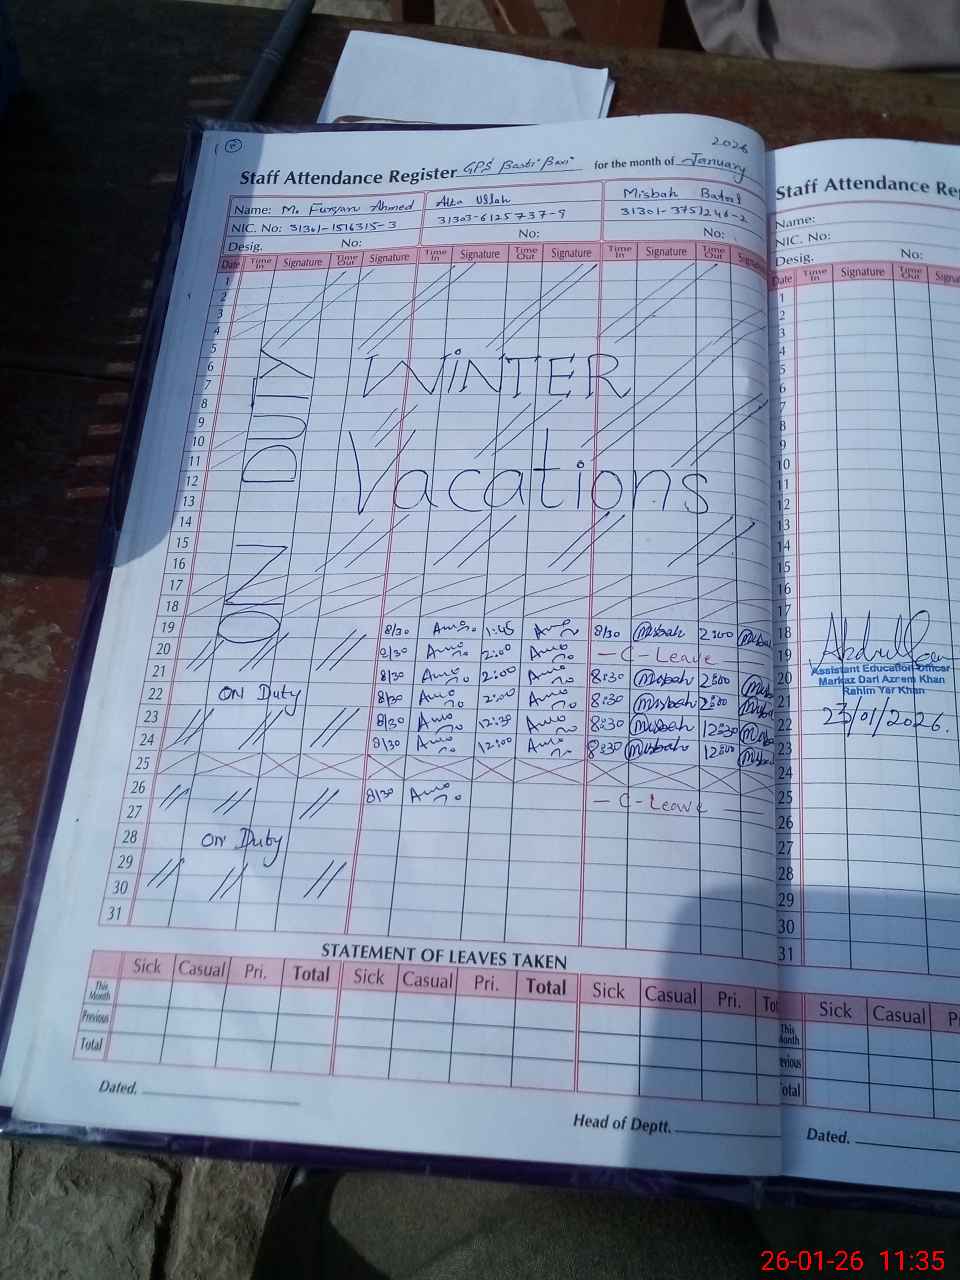 2026
Staff Attendance Register GPS Basti Baxi for the month of January
Name: M. Furqan Ahmed
NIC. No: 31301-1516315-3
Desig. No:
Atta Ullah
31303-6125737-9
No:
Misbah Batool
31301-3751246-2
No:
Date Time In Signature Time Out Signature Time In Signature Time Out Signature Time In Signature Time Out Signature
1
2
3
4
5
6
7
8
9
10
11
12
13
14
15
16
17
18
ON DUTY
WINTER
Vacations
19 8/30 1:45 8/30 Misbah 2:00
20 8/30 2:00 - C-Leave
21 8/30 2:00 8:30 Misbah 2:00
22 ON Duty 8/30 2:00 8:30 Misbah 2:00
23 8/30 12:30 8:30 Misbah 12:30
24 8/30 12:00 8:30 Misbah 12:00
25
26 8/30 - C-Leave
27
28 On Duty
29
30
31
STATEMENT OF LEAVES TAKEN
Sick Casual Pri. Total Sick Casual Pri. Total Sick Casual Pri.
This Month
Previous
Total
Dated.
Head of Deptt.
Staff Attendance
Name:
NIC. No:
Desig. No:
Date Time In Signature Time Out
1
2
3
4
5
6
7
8
9
10
11
12
13
14
15
16
17
18
19
20
21
22
23
24
25
26
27
28
29
30
31
Assistant Education Officer
Markaz Dari Azeem Khan
Rahim Yar Khan
23/01/2026.
Sick Casual
This Month
Dated.
26-01-26 11:35